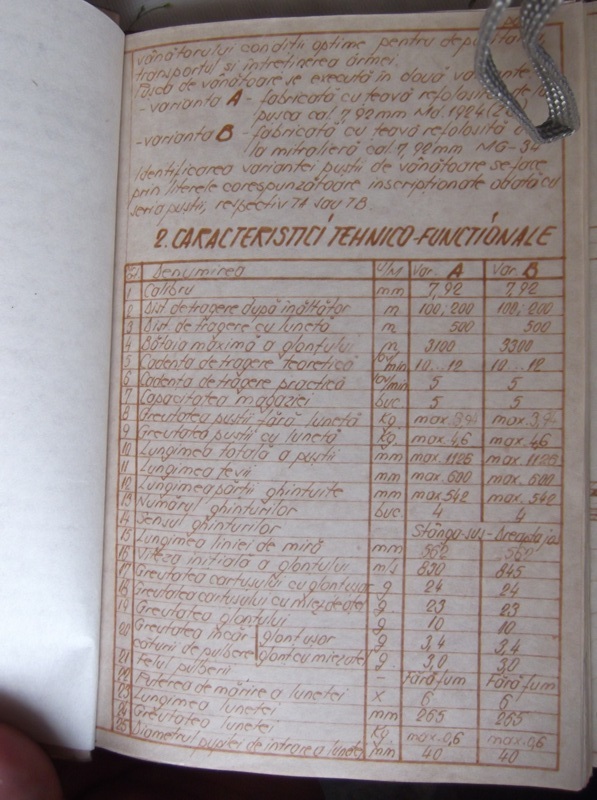 vânătorului condiții optime pentru
transportul și întreținerea armei.
Pușca de vânătoare se execută în două variante
- varianta A - fabricată cu țeavă refolosită de la
pușca cal. 7,92mm Md. 1924
- varianta B - fabricată cu țeavă refolosită
la mitralieră cal. 7,92mm MG-34
Identificarea variantei puștii de vânătoare se face
prin literele corespunzătoare inscripționate odată cu
seria puștii, respectiv TA sau TB.
2. CARACTERISTICI TEHNICO-FUNCȚIONALE
Denumirea U/M Var. A Var. B
1 Calibru mm 7,92 7,92
2 Dist. de tragere după înălțător m 100; 200 100; 200
3 Dist. de tragere cu lunetă m 500 500
4 Bătaia maximă a glonțului m 3100 3300
5 Cadența de tragere teoretică lov/min 10...12 10...12
6 Cadența de tragere practică lov/min 5 5
7 Capacitatea magaziei buc 5 5
8 Greutatea puștii fără lunetă kg max. 3,94 max. 3,94
9 Greutatea puștii cu lunetă kg max. 4,6 max. 4,6
10 Lungimea totală a puștii mm max. 1126 max. 1126
11 Lungimea țevii mm max. 600 max. 600
12 Lungimea părții ghintuite mm max. 542 max. 542
13 Numărul ghinturilor buc 4 4
14 Sensul ghinturilor Stânga-sus-Dreapta jos
15 Lungimea liniei de miră mm 562 562
16 Viteza inițială a glonțului m/s 830 845
17 Greutatea cartușului cu glonț ușor g 24 24
18 Greutatea cartușului cu miez de oțel g 23 23
19 Greutatea glonțului g 10 10
20 Greutatea încăr- glonț ușor g 3,4 3,4
căturii de pulbere glonț cu miez oțel g 3,0 3,0
21 Felul pulberii - Fără fum Fără fum
22 Puterea de mărire a lunetei x 6 6
23 Lungimea lunetei mm 265 265
24 Greutatea lunetei kg max. 0,6 max. 0,6
25 Diametrul pupilei de intrare a lunetei mm 40 40